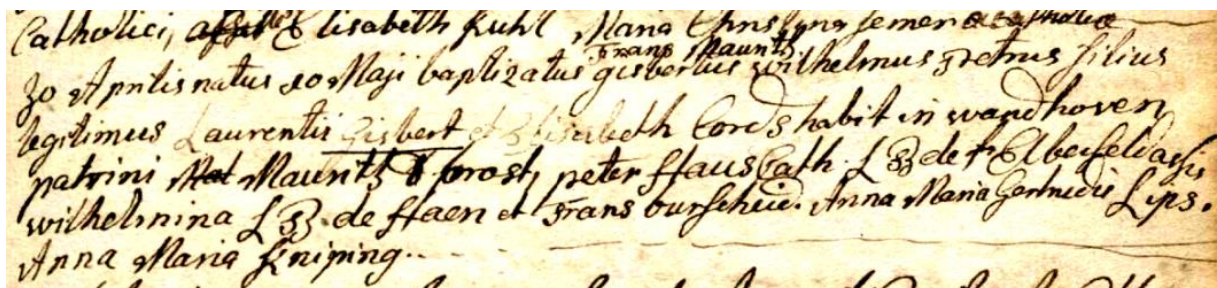 Catholici, Elisabeth Kuhl Maria
Frans Mauritz
30 Aprilis natus 10 Maji baptizatus gisbertus wilhelmus petrus filius
legitimus Laurentii Gisbert et Elisabeth Cords habit in wandhoven
patrini Mauritz frost, peter ffaus Cath. L B de Elberfeld
wilhelmina L B. de ffaen et Frans burscheid. Anna Maria Gertrudis Lips.
Anna Maria Kniping..